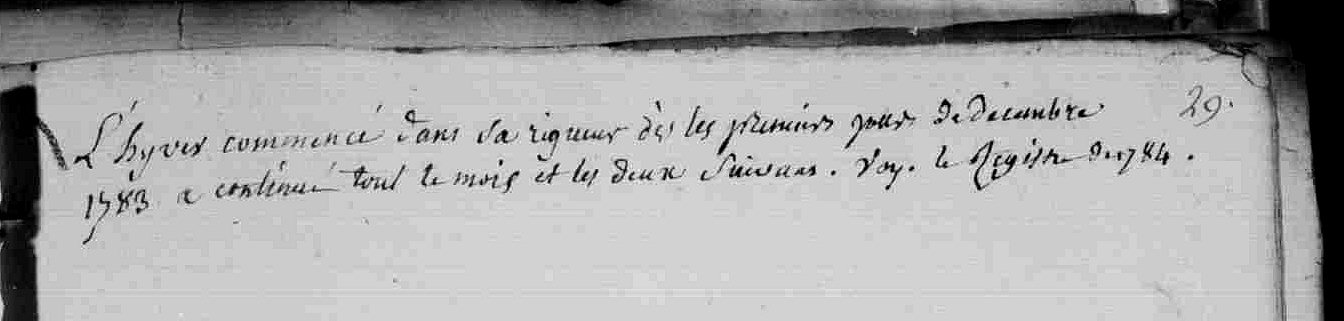 29.
L'hyver commencé dans sa rigueur dès les premiers jours de decembre
1783 a continué tout le mois et les deux suivans. Voy. le Registre de 1784.